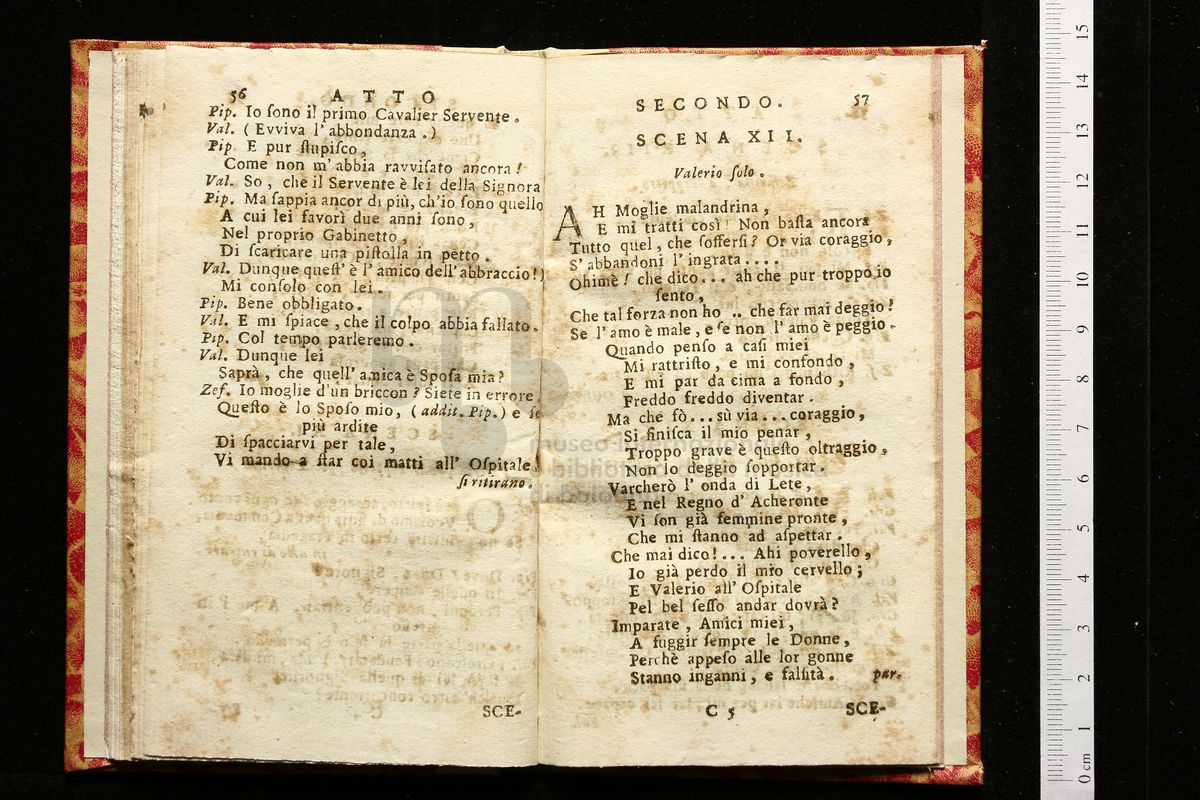 56 ATTO
Pip. Io ſono il primo Cavalier Servente.
Val. (Evviva l'abbondanza.)
Pip. E pur ſtupiſco,
Come non m'abbia ravviſato ancora!
Val. So, che il Servente è lei della Signora
Pip. Ma ſappia ancor di più, ch'io ſono quello
A cui lei favorì due anni ſono,
Nel proprio Gabinetto,
Di ſcaricare una piſtolla in petto.
Val. Dunque queſt'è l'amico dell'abbraccio!)
Mi conſolo con lei.
Pip. Bene obbligato.
Val. E mi ſpiace, che il colpo abbia fallato.
Pip. Col tempo parleremo.
Val. Dunque lei
Saprà, che quell'amica è Spoſa mia?
Zef. Io moglie d'un briccon? Siete in errore.
Queſto è lo Spoſo mio, (addit. Pip.) e ſe
più ardite
Di ſpacciarvi per tale,
Vi mando a ſtar coi matti all' Oſpitale.
ſi ritirano.
SCE-
SECONDO. 57
SCENA XII.
Valerio ſolo.
AH Moglie malandrina,
E mi tratti così! Non baſta ancora
Tutto quel, che ſofferſi? Or via coraggio,
S'abbandoni l'ingrata....
Ohimè! che dico... ah che pur troppo io
ſento,
Che tal forza non ho .. che far mai deggio!
Se l'amo è male, e ſe non l'amo è peggio.
Quando penſo a caſi miei
Mi rattriſto, e mi confondo,
E mi par da cima a fondo,
Freddo freddo diventar.
Ma che fò... sù via... coraggio,
Si finiſca il mio penar,
Troppo grave è queſto oltraggio,
Non lo deggio ſopportar.
Varcherò l'onda di Lete,
E nel Regno d'Acheronte
Vi ſon già femmine pronte,
Che mi ſtanno ad aſpettar.
Che mai dico!... Ahi poverello,
Io già perdo il mio cervello;
E Valerio all' Oſpitale
Pel bel ſeſſo andar dovrà?
Imparate, Amici miei,
A fuggir ſempre le Donne,
Perchè appeſo alle lor gonne
Stanno inganni, e falſità. par.
C 5 SCE-